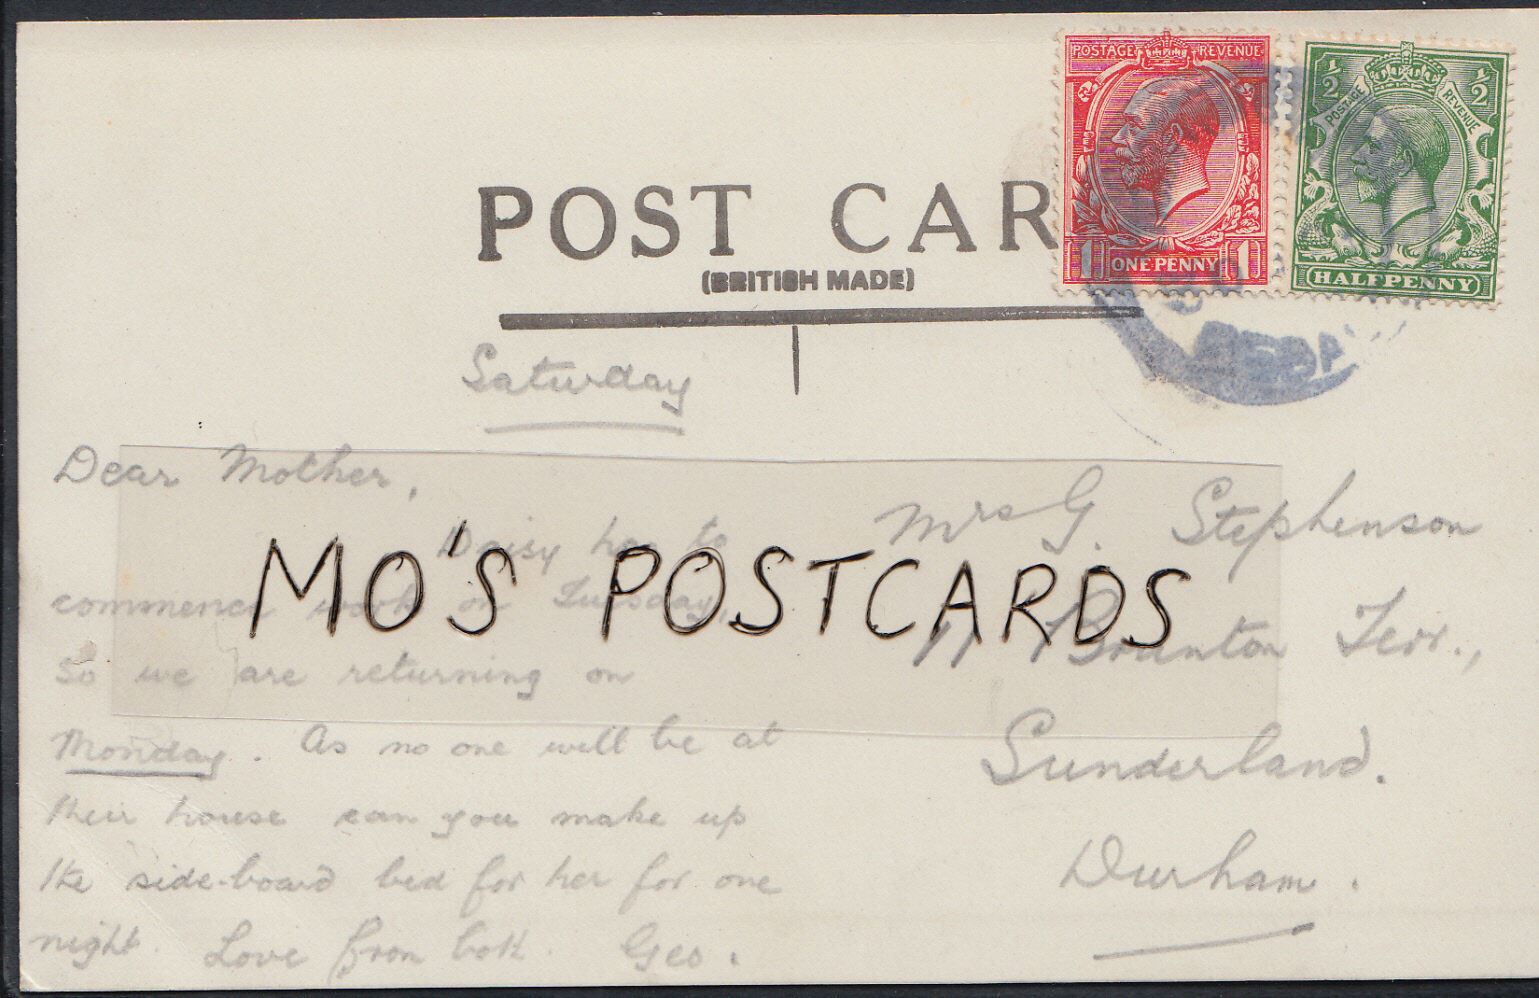 POSTAGE REVENUE
1 ONE PENNY 1
½ ½
POSTAGE REVENUE
HALFPENNY
POST CAR
(BRITISH MADE)
Saturday
Dear Mother,
Daisy has to
commence work on Tuesday,
so we are returning on
Monday. As no one will be at
their house can you make up
the side-board bed for her for one
night. Love from both. Geo.
MO'S POSTCARDS
Mrs G. Stephenson
11 Terr.,
Sunderland.
Durham.